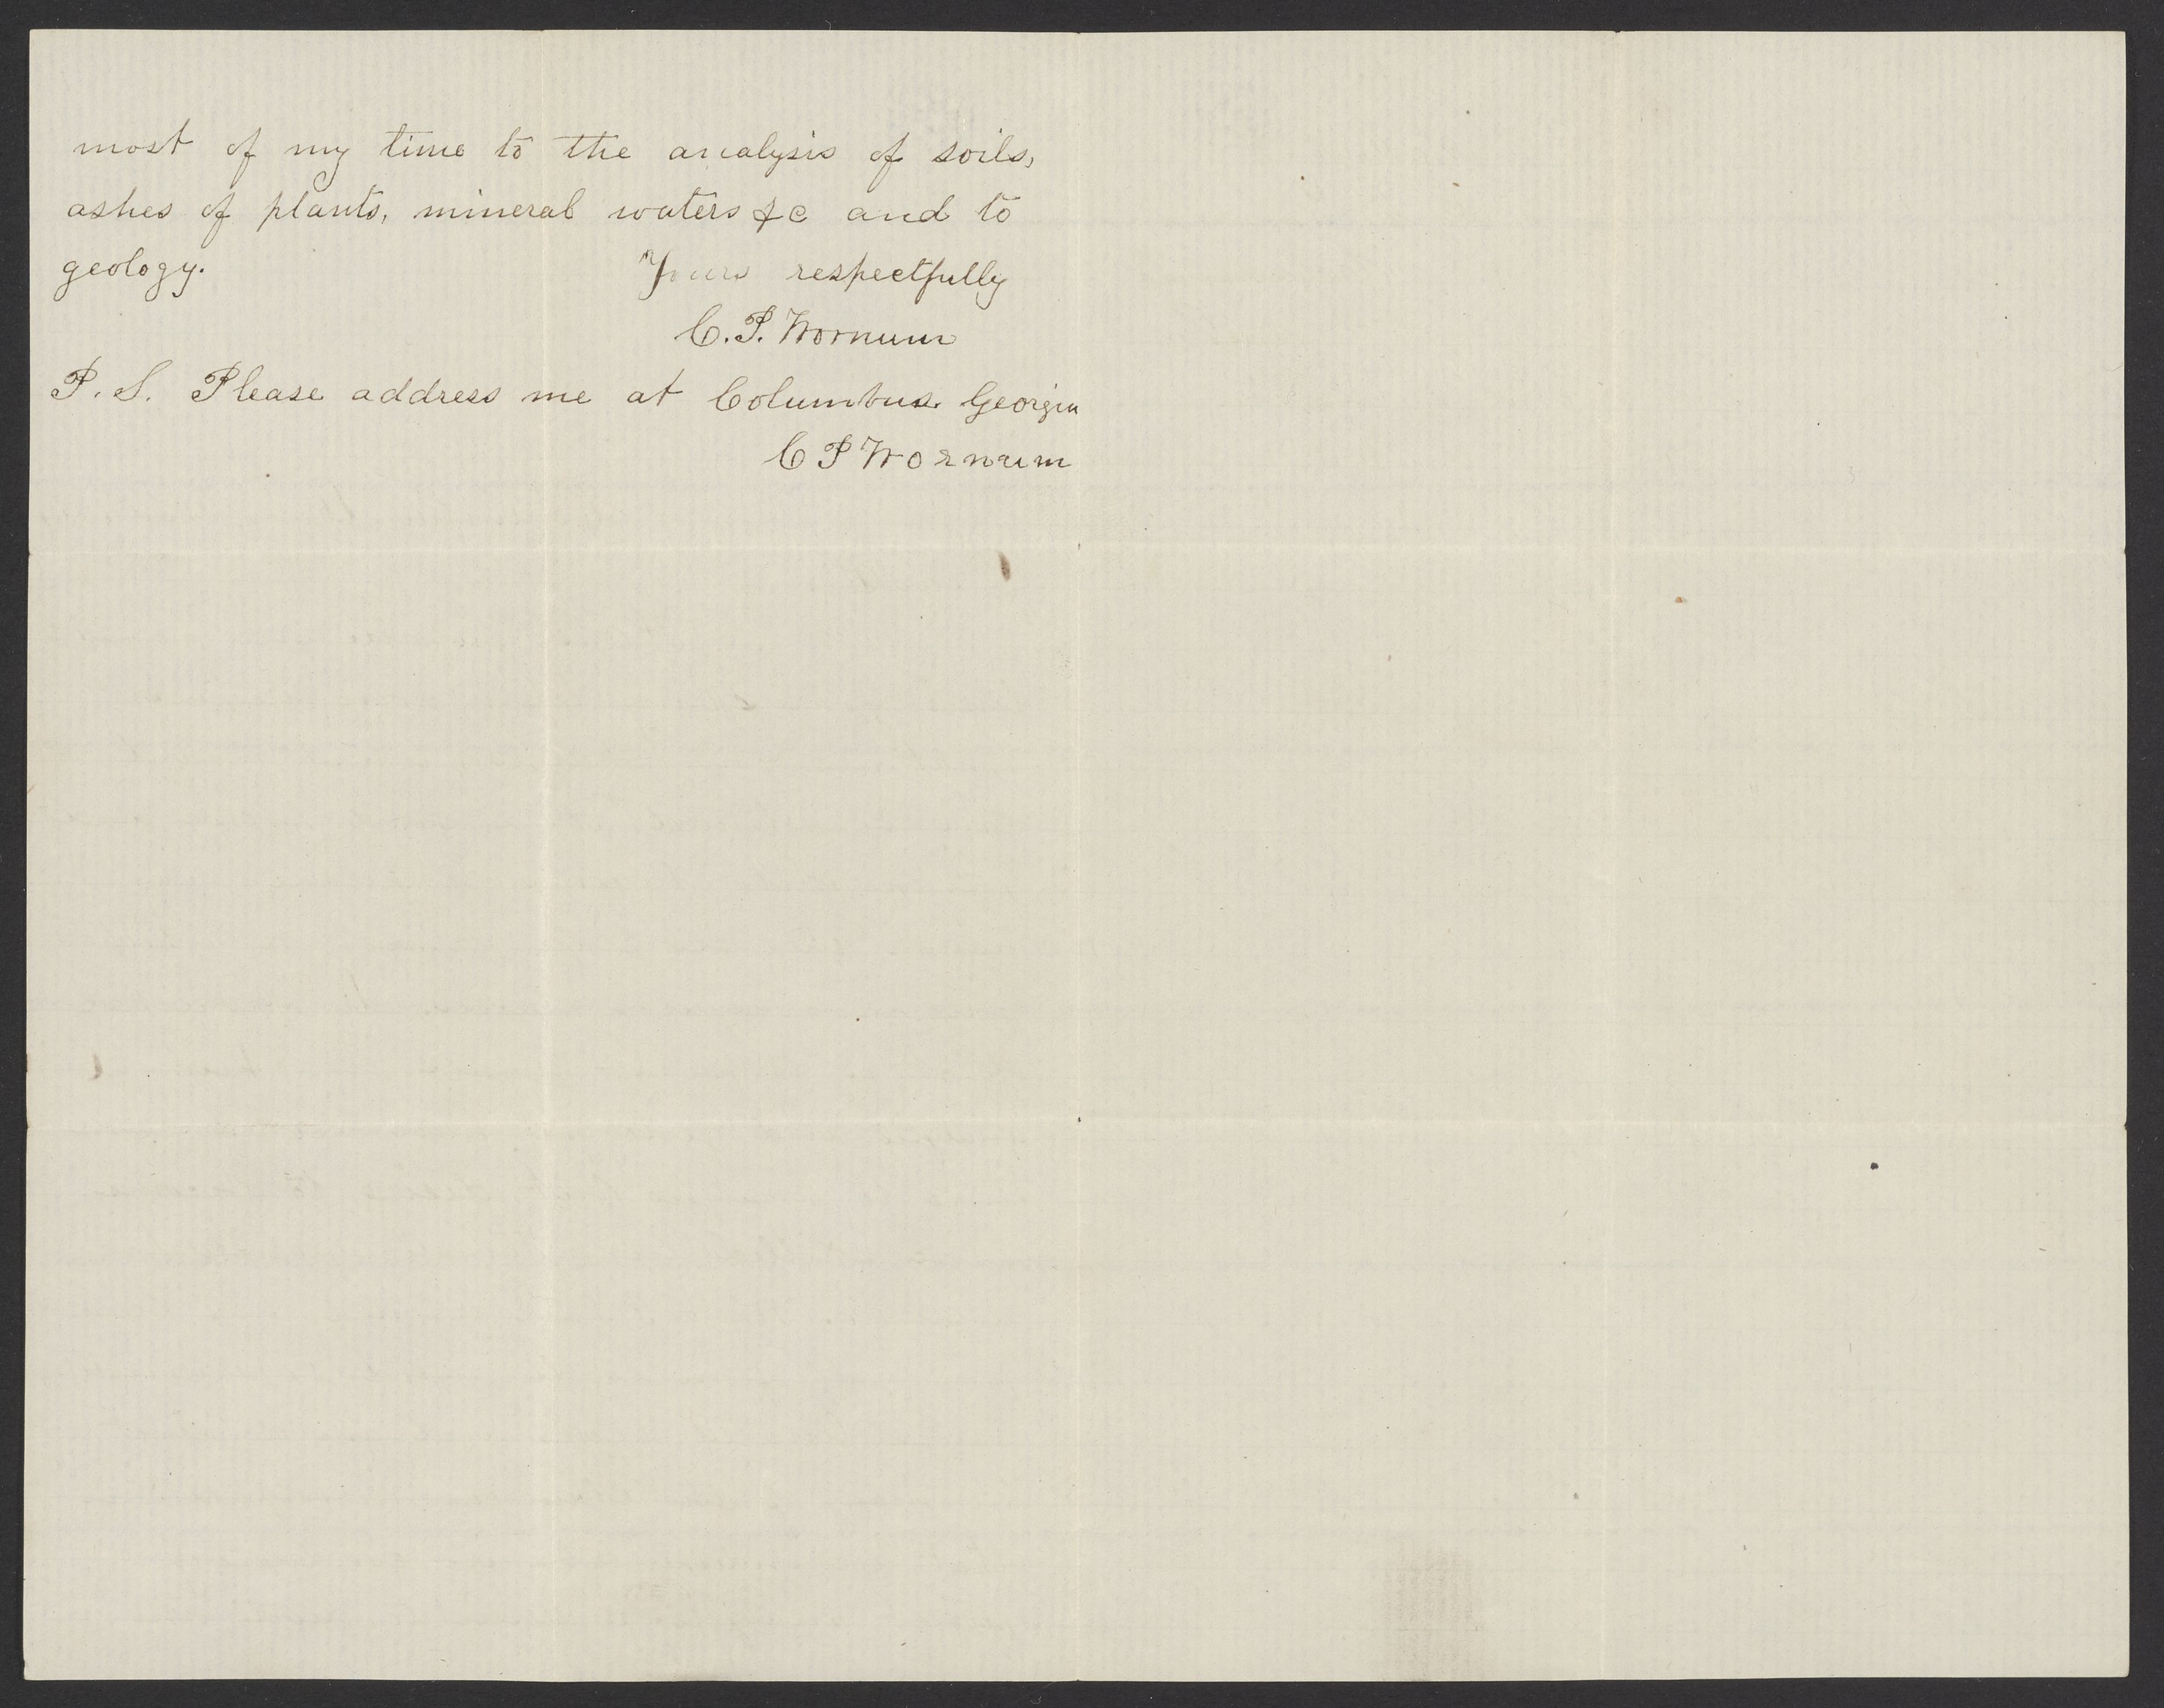 most of my time to the analysis of soils,
ashes of plants, mineral waters &c and to
geology.
Yours respectfully
C. P. Wornum
P. S. Please address me at Columbus Georgia
C P Wornum